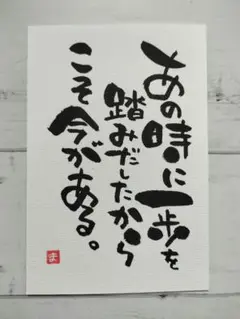 あの時に一歩を
踏みだしたから
こそ今がある。
ま